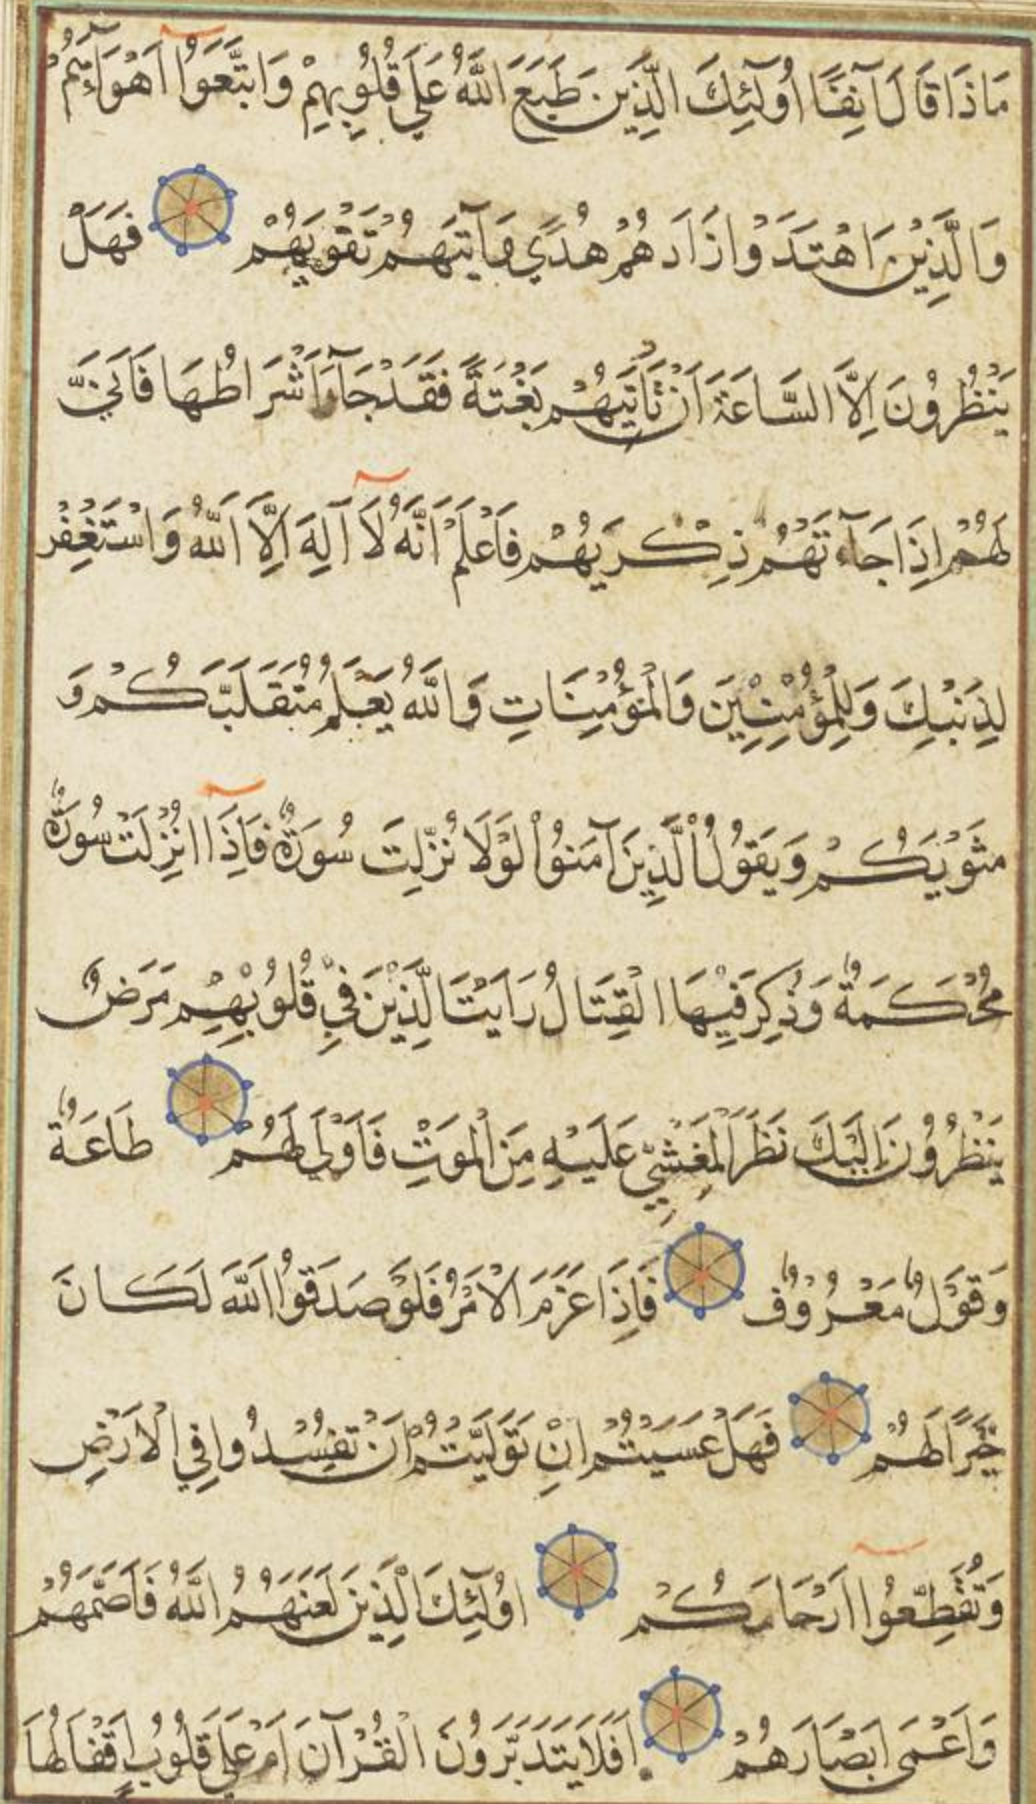 مَاذَا قَالَ آنِفًا أُولَٓئِكَ الَّذِينَ طَبَعَ اللّٰهُ عَلَى قُلُوبِهِمْ وَاتَّبَعَوُا اَهْوَاءَهُمْ
وَالَّذِيْنَ اهْتَدَوْا زَادَهُمْ هُدًي وَآتَيهُمْ تَقْوَيهُمْ فَهَلْ
يَنْظُرُونَ اِلَّا السَّاعَةَ اَنْ تَأْتِيَهُمْ بَغْتَةً فَقَدْ جَآءَ اَشْرَاطُهَا فَاَنّٰي
لَهُمْ اِذَا جَآءَتْهُمْ ذِكْرَيهُمْ فَاَعْلَمْ اَنَّهُ لَا آلِهَ اِلَّا اللّٰهُ وَاسْتَغْفِرْ
لِذَنْبِكَ وَلِلْمُؤْمِنِيْنَ وَالْمُؤْمِنَاتِ وَاللّٰهُ يَعْلَمُ مُتَقَلَّبَكُمْ وَ
مَثْوَيكُمْ وَيَقُولُ الَّذِيْنَ آمَنُوْا لَوْلَا نُزِّلَتْ سُورَةٌ فَاِذَا اُنْزِلَتْ سُورَةٌ
مُحْكَمَةٌ وَذُكِرَ فِيْهَا الْقِتَالُ رَايْتَ الَّذِيْنَ فِيْ قُلُوْبِهِمْ مَرَضٌ
يَنْظُرُوْنَ اِلَيْكَ نَظَرَ الْمَغْشِيِّ عَلَيْهِ مِنَ الْمَوْتِ فَاَوْلٰي لَهُمْ طَاعَةٌ
وَقَوْلٌ مَعْرُوْفٌ فَاِذَا عَزَمَ الْاَمْرُ فَلَوْ صَدَقُوا اللّٰهَ لَكَانَ
خَيْرًا لَهُمْ فَهَلْ عَسَيْتُمْ اِنْ تَوَلَّيْتُمْ اَنْ تُفْسِدُوا فِي الْاَرْضِ
وَتُقَطِّعُوا اَرْحَامَكُمْ اُولٰٓئِكَ الَّذِيْنَ لَعَنَهُمُ اللّٰهُ فَاَصَمَّهُمْ
وَاَعْمَى اَبْصَارَهُمْ اَفَلَا يَتَدَبَّرُوْنَ الْقُرْآنَ اَمْ عَلَى قُلُوبٍ اَقْفَالُهَا